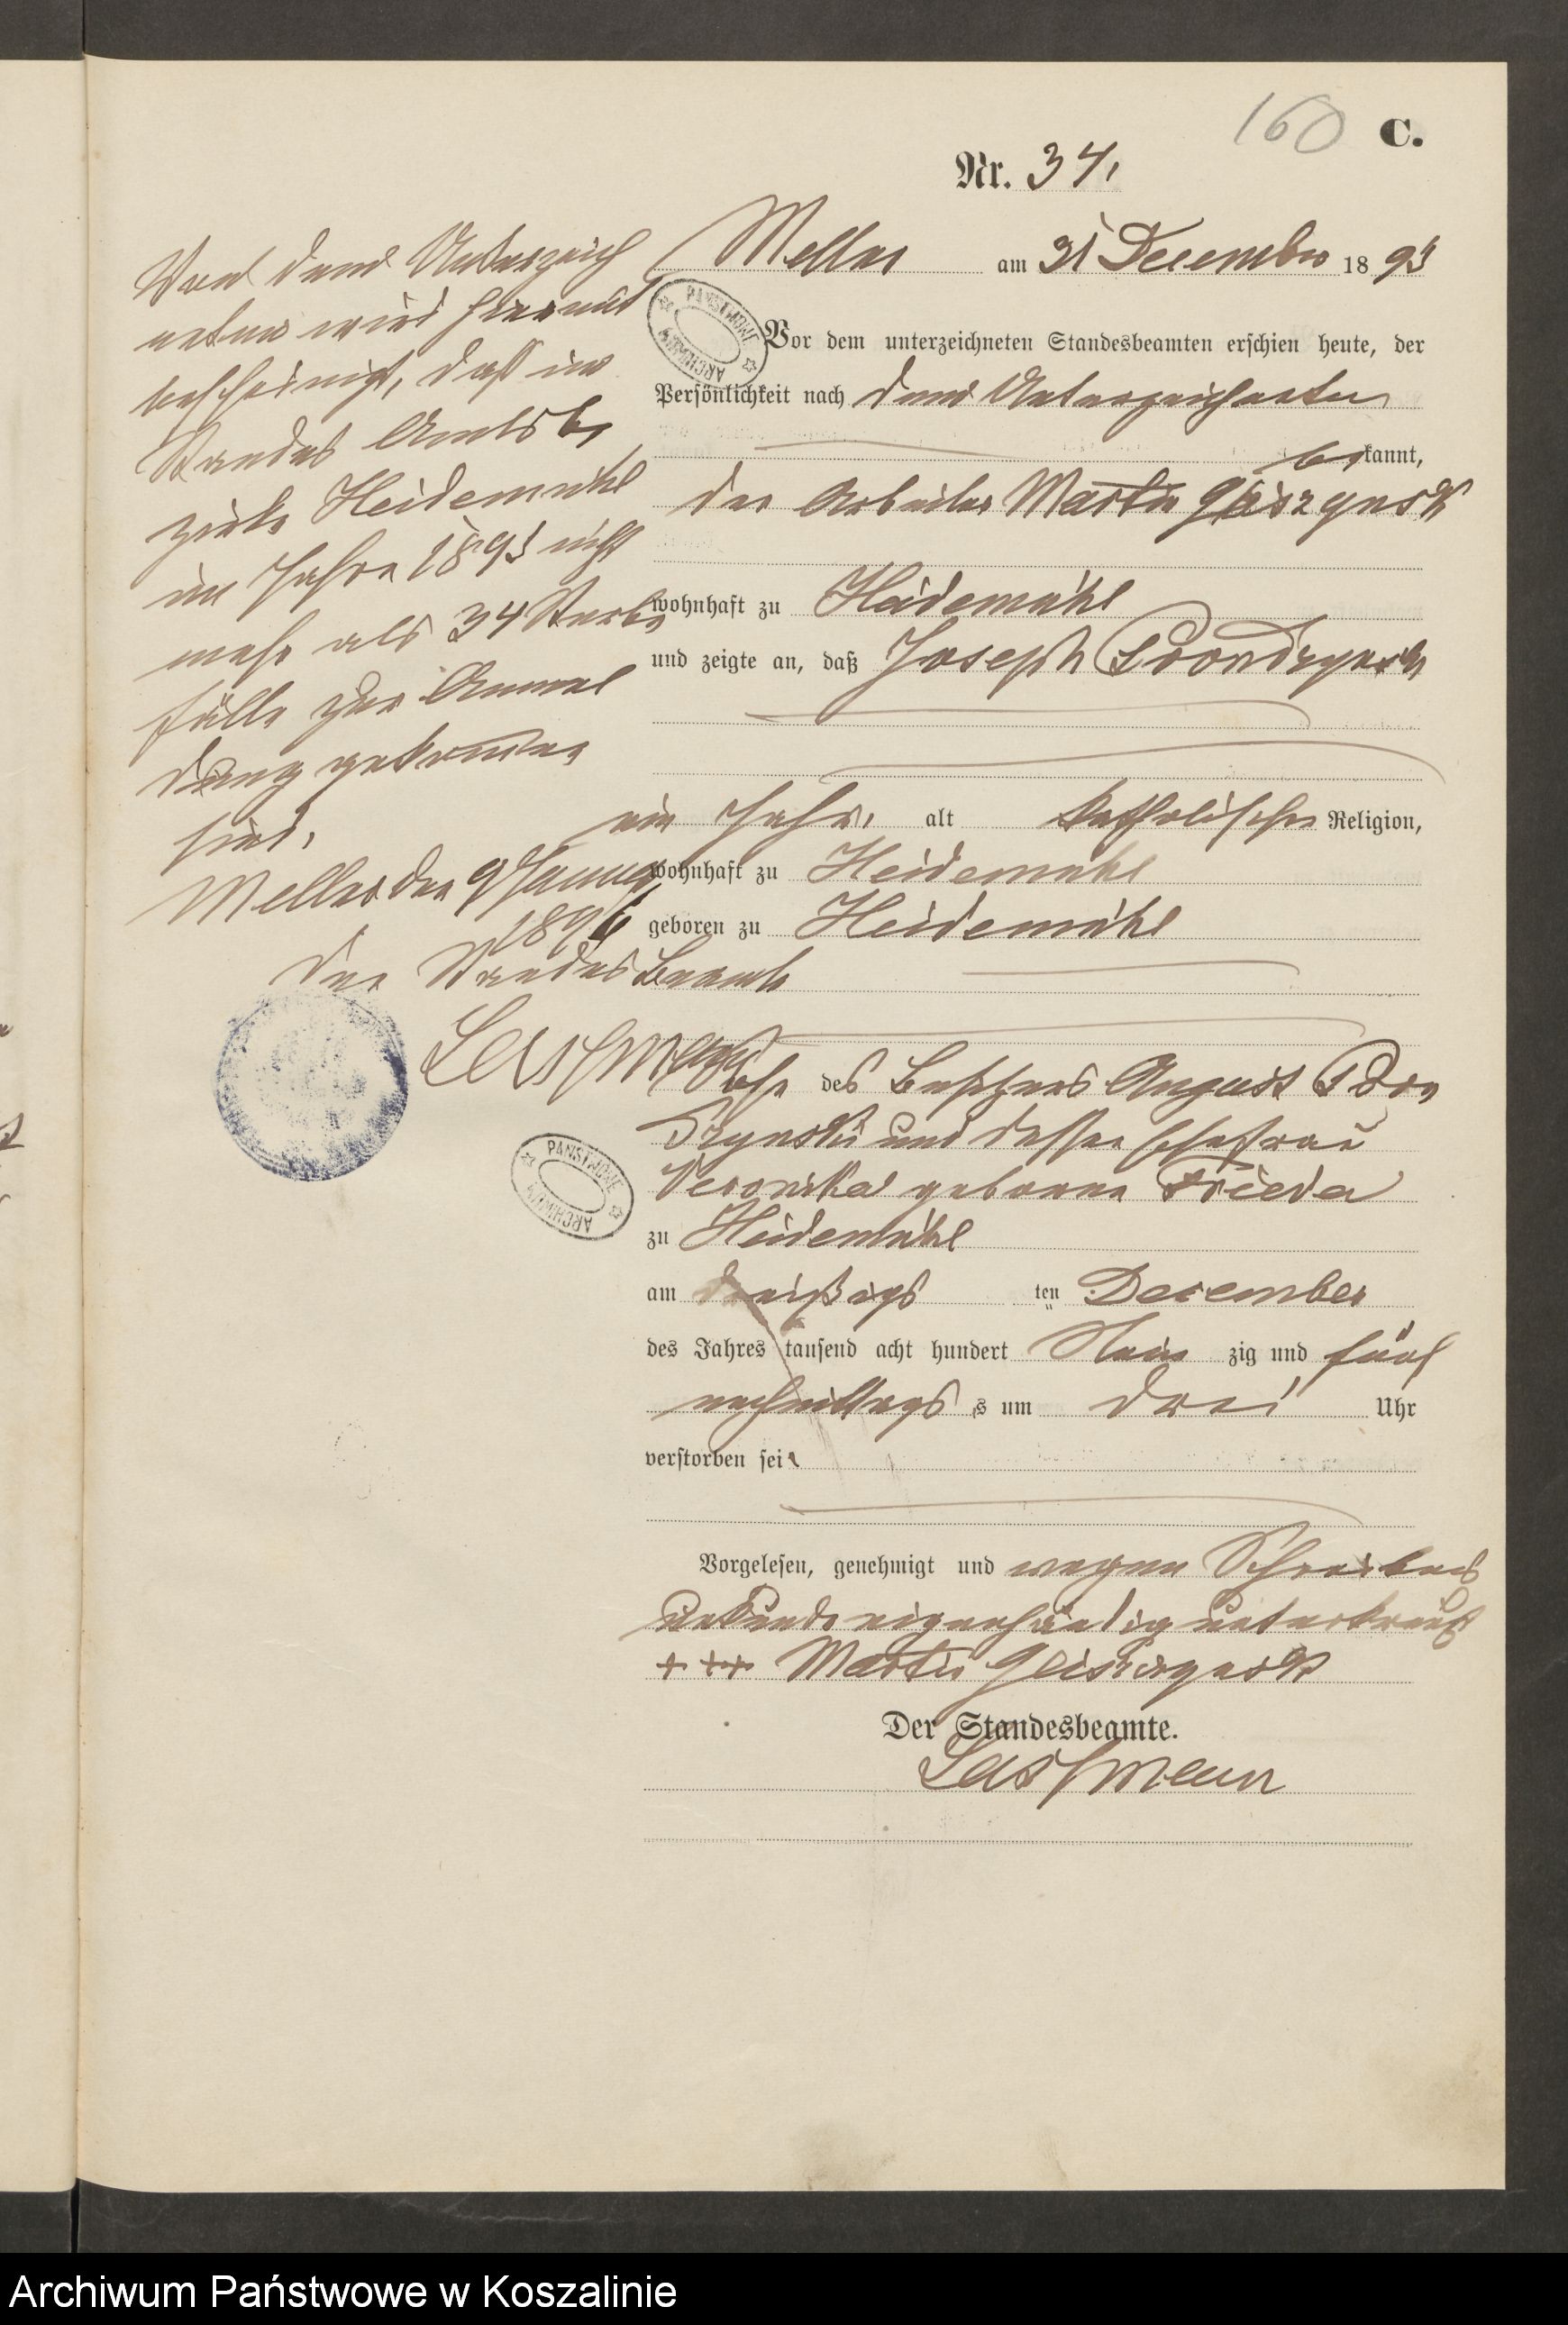 160 C.
Nr. 34.
Meller am 31 December 18 95
Vor dem unterzeichneten Standesbeamten erschien heute, der
Persönlichkeit nach dem Unterzeichneten
bekannt,
der Arbeiter Martin
wohnhaft zu Heidemühl
und zeigte an, daß Joseph
ein Jahr, alt katholischer Religion,
wohnhaft zu Heidemühl
geboren zu Heidemühl
des Besitzers August
und dessen Ehefrau
Veronika geborene Frieda
zu Heidemühl
am dreißigs ten December
des Jahres tausend acht hundert Neun zig und fünf
nachmittags s um drei Uhr
verstorben sei
Vorgelesen, genehmigt und wegen Schreibens
unkunde eigenhändig unterkreuzt
+++ Martin
Der Standesbeamte.
Lassmann
Von dem Unterzeich
neten wird hiermit
bescheinigt, daß im
Standes Amtsbe
zirke Heidemühl
im Jahre 1895 nicht
mehr als 34 Sterbe
fälle zur Anmel
dung gekommen
sind.
Meller den 9 Januar
1896
Der Standes Beamte
Lassmann
ARCHIWUM PAŃSTWOWE
ARCHIWUM PAŃSTWOWE
Archiwum Państwowe w Koszalinie